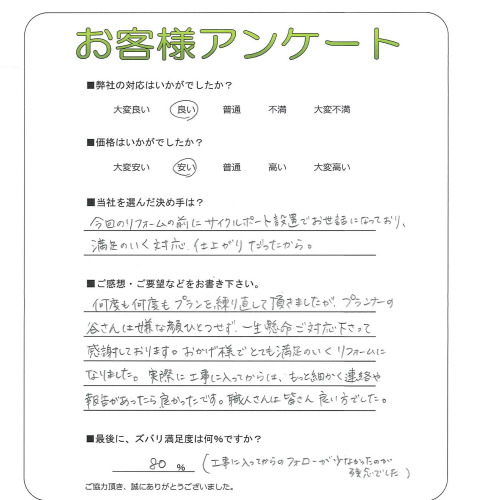 お客様アンケート
■弊社の対応はいかがでしたか？
大変良い 良い 普通 不満 大変不満
■価格はいかがでしたか？
大変安い 安い 普通 高い 大変高い
■当社を選んだ決め手は？
今回のリフォームの前にサイクルポート設置でお世話になっており、
満足のいく対応、仕上がりだったから。
■ご感想・ご要望などをお書き下さい。
何度も何度もプランを練り直して頂きましたが、プランナーの
谷さんは嫌な顔ひとつせず、一生懸命ご対応下さって
感謝しております。おかげ様でとても満足のいくリフォームに
なりました。実際に工事に入ってからは、もっと細かく連絡や
報告があったら良かったです。職人さんは皆さん良い方でした。
■最後に、ズバリ満足度は何％ですか？
80 % (工事に入ってからのフォローが少なかったのが
残念でした)
ご協力頂き、誠にありがとうございました。